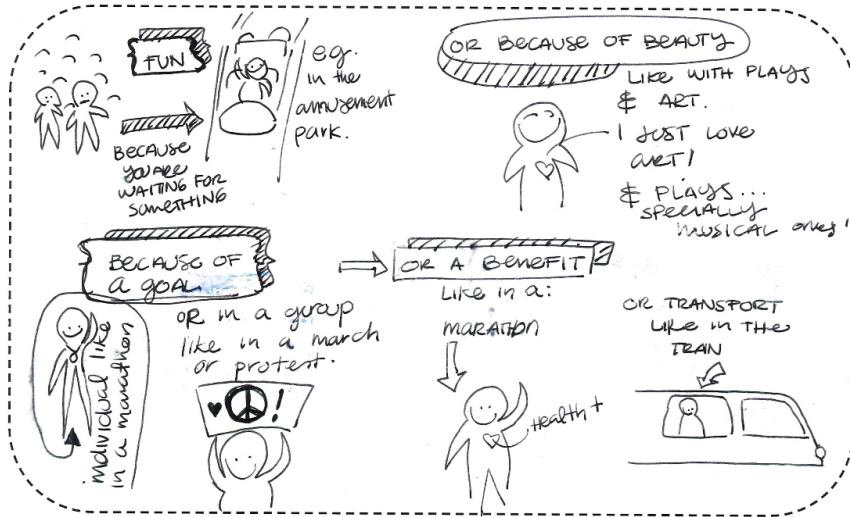 FUN
e.g.
in the
amusement
park.
BECAUSE
YOU ARE
WAITING FOR
SOMETHING
OR BECAUSE OF BEAUTY
LIKE WITH PLAYS
& ART.
I JUST LOVE
ART!
& PLAYS...
SPECIALLY
MUSICAL ONES!
BECAUSE OF
A GOAL
individual like
in a marathon
OR in a group
like in a march
or protest.
!
OR A BENEFIT
LIKE IN A:
MARATHON
Health +
OR TRANSPORT
LIKE IN THE
TRAIN